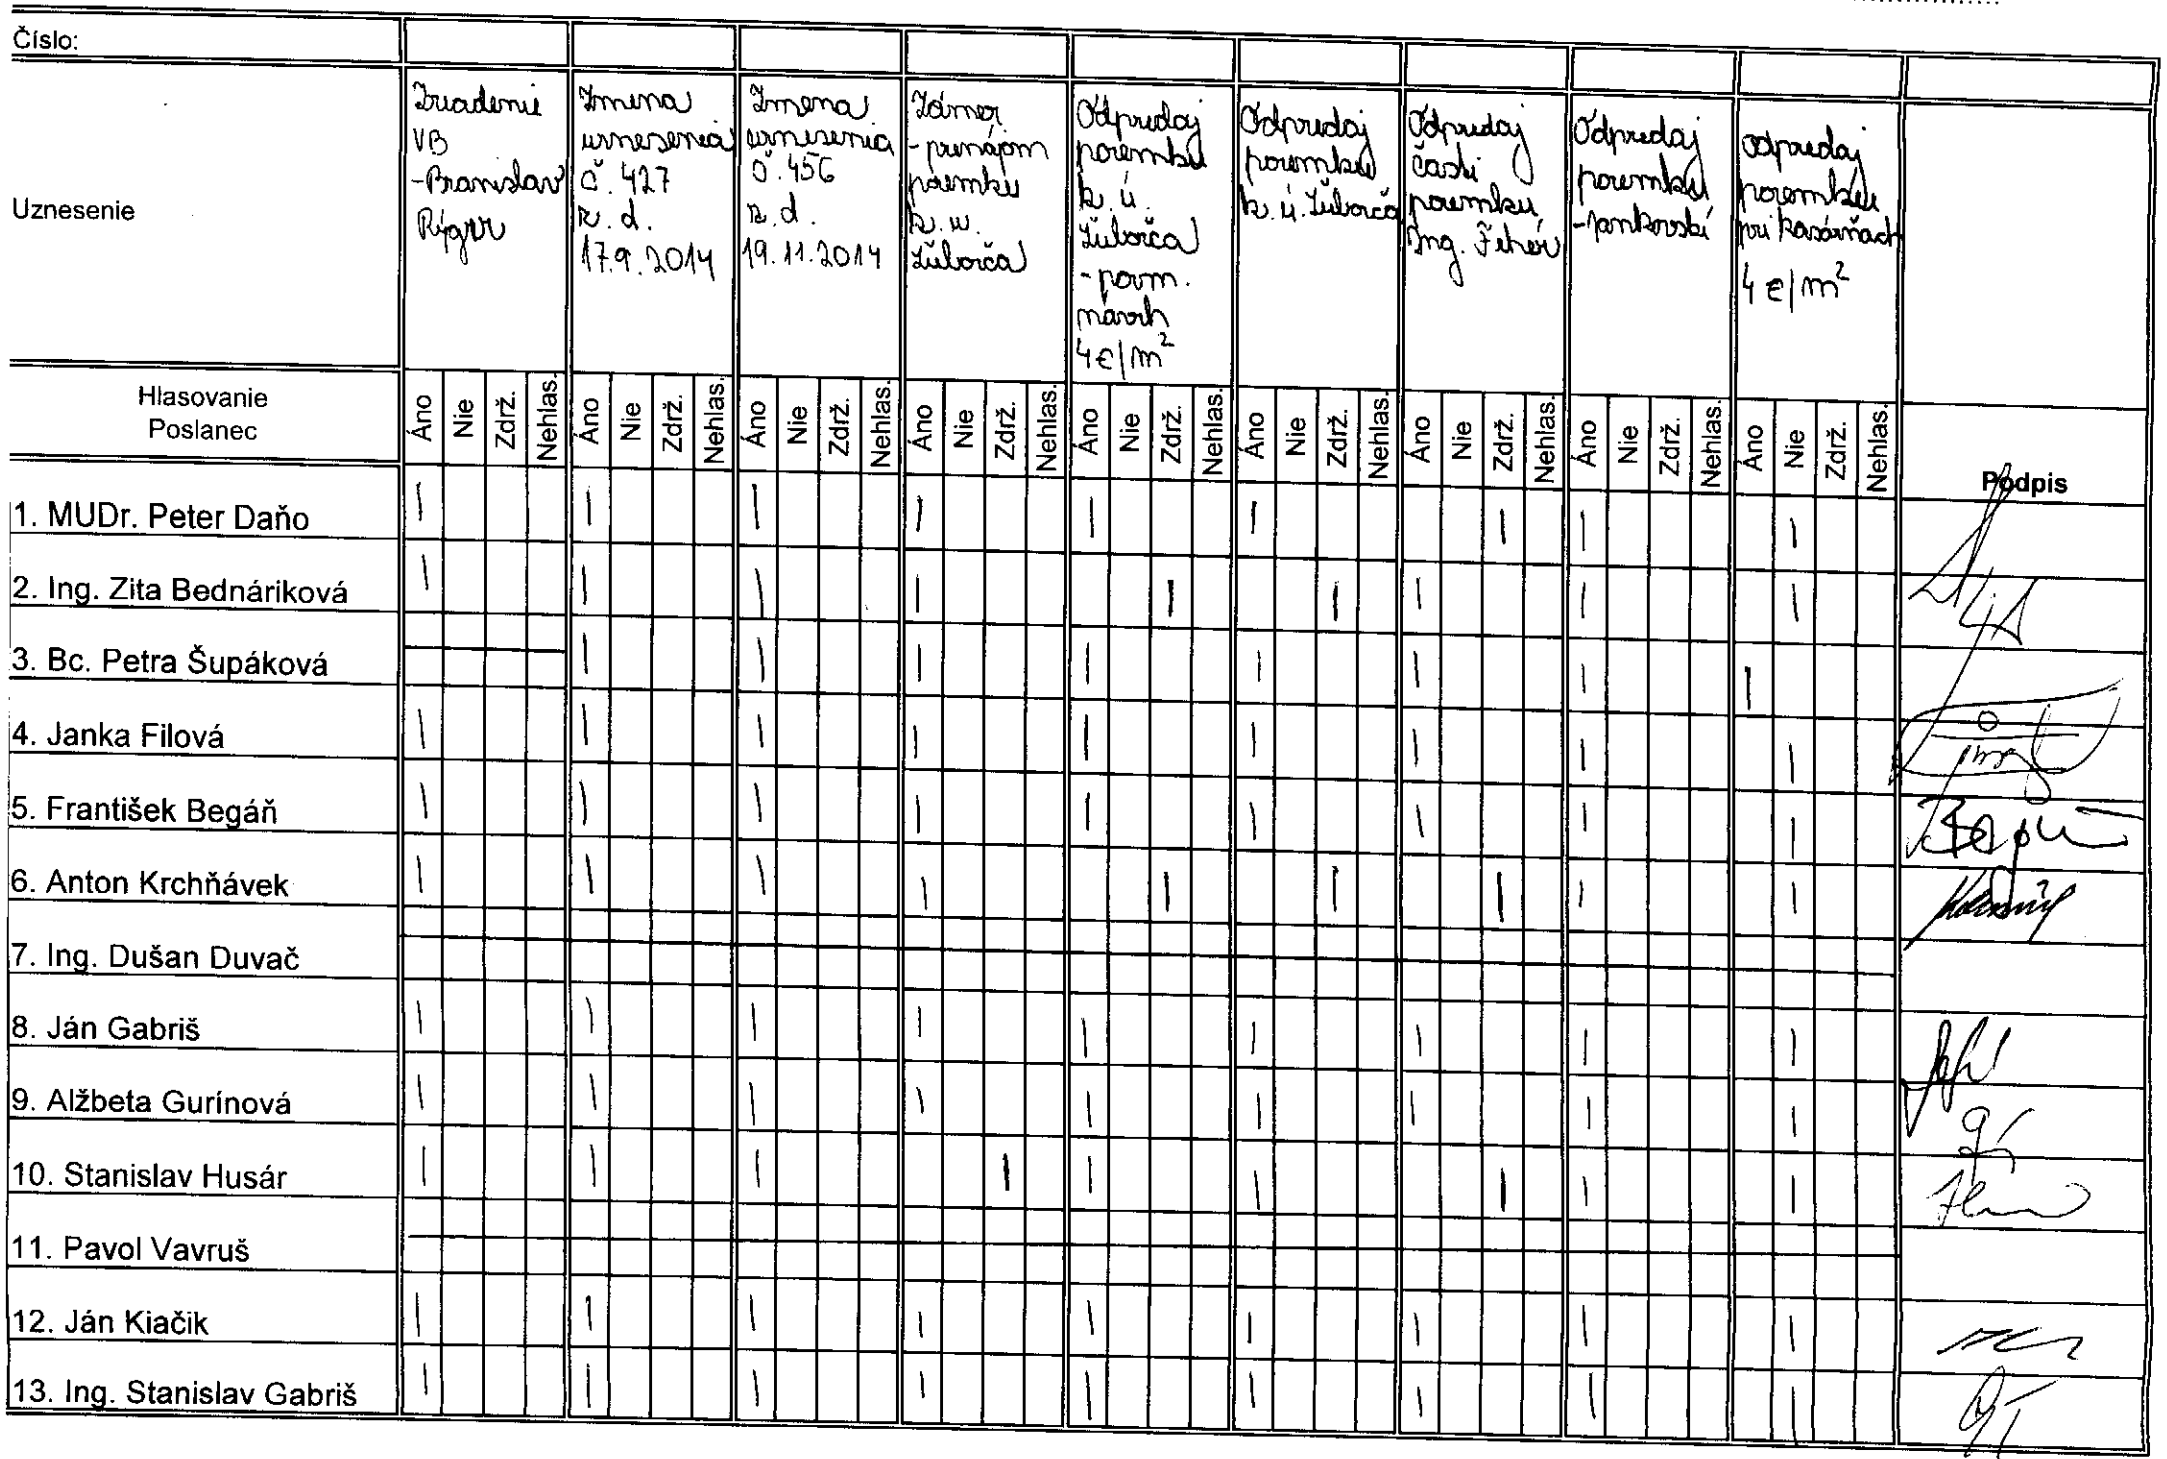 Číslo:
Uznesenie
Zriadenie
VB
-Branislav
Rýger
Zmena
uznesenia
č. 427
z. d.
17.9.2014
Zmena
uznesenia
č. 456
z. d.
19.11.2014
Zámer
- prenájom
pozemku
k. ú.
Ľuborča
Odpredaj
pozemku
k. ú.
Ľuborča
- pozm.
návrh
4€/m²
Odpredaj
pozemku
k. ú. Ľuborča
Odpredaj
časti
pozemku
Ing. Feher
Odpredaj
pozemku
odpredaj
pozemku
pri kasárňach
4 €/m²
Hlasovanie
Poslanec
Áno Nie Zdrž. Nehlas. Áno Nie Zdrž. Nehlas. Áno Nie Zdrž. Nehlas. Áno Nie Zdrž. Nehlas. Áno Nie Zdrž. Nehlas. Áno Nie Zdrž. Nehlas. Áno Nie Zdrž. Nehlas. Áno Nie Zdrž. Nehlas. Áno Nie Zdrž. Nehlas.
Podpis
1. MUDr. Peter Daňo
2. Ing. Zita Bednáriková
3. Bc. Petra Šupáková
4. Janka Filová
5. František Begáň
6. Anton Krchňávek
7. Ing. Dušan Duvač
8. Ján Gabriš
9. Alžbeta Gurínová
10. Stanislav Husár
11. Pavol Vavruš
12. Ján Kiačik
13. Ing. Stanislav Gabriš